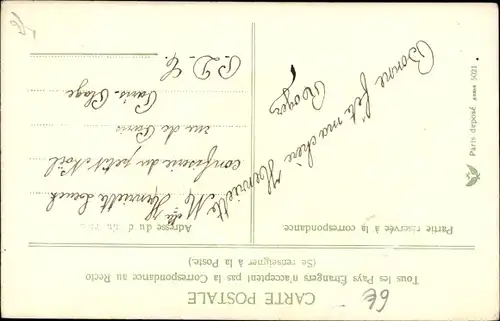 CARTE POSTALE
Tous les Pays Étrangers n'acceptent pas la Correspondance au Recto
(Se renseigner à la Poste.)
Partie réservée à la correspondance.
Adresse du
Bonne fête ma chère Henriette
Roger
Melle Henriette
confiserie du petit Noël
rue de Paris
Paris-Plage
P. D. C.
Paris déposé. 5021.
6E